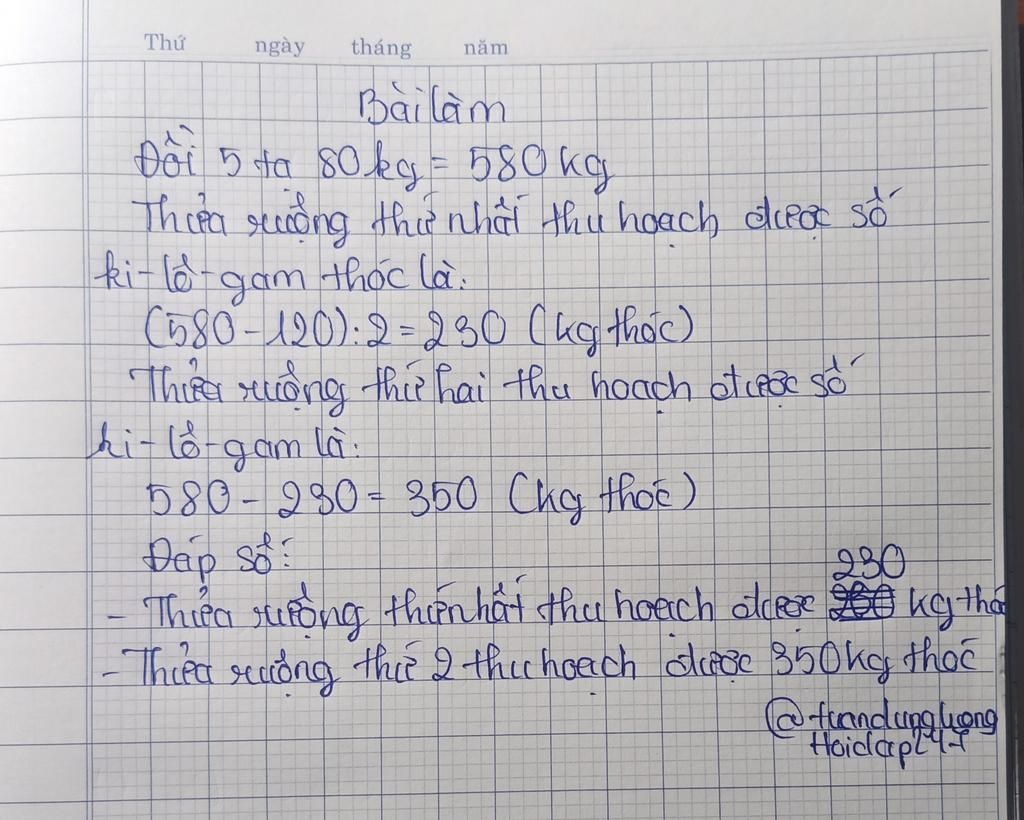 Thứ ngày tháng năm
Bài làm
Đổi 5 tạ 80 kg = 580 kg
Thửa ruộng thứ nhất thu hoạch được số
ki-lô-gam thóc là:
(580 - 120) : 2 = 230 (kg thóc)
Thửa ruộng thứ hai thu hoạch được số
ki-lô-gam là:
580 - 230 = 350 (kg thóc)
Đáp số:
230
- Thửa ruộng thứ nhất thu hoạch được kg thó
- Thửa ruộng thứ 2 thu hoạch được 350 kg thóc
@tuandungluong